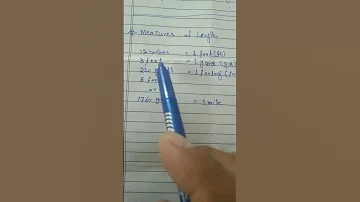 Measures of Length
12 inches = 1 foot (ft)
3 feet = 1 yard (yd)
220 = 1 furlong
8
or
1760 = 1 mile